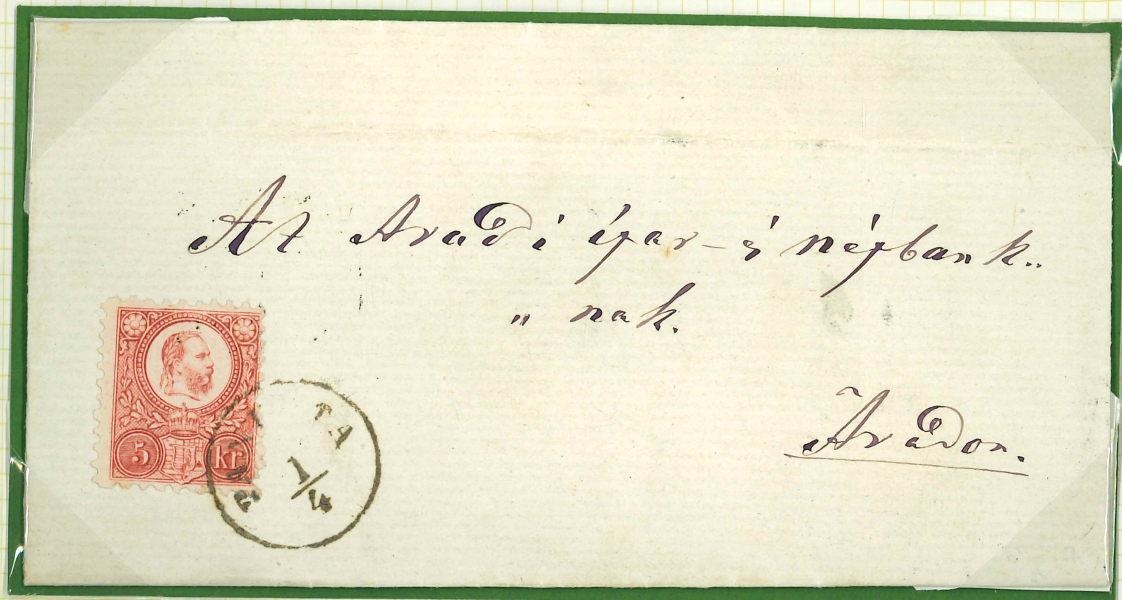 Az Aradi ipar- és népbank„
„ nak.
Aradon.
5 kr
TA
1/4